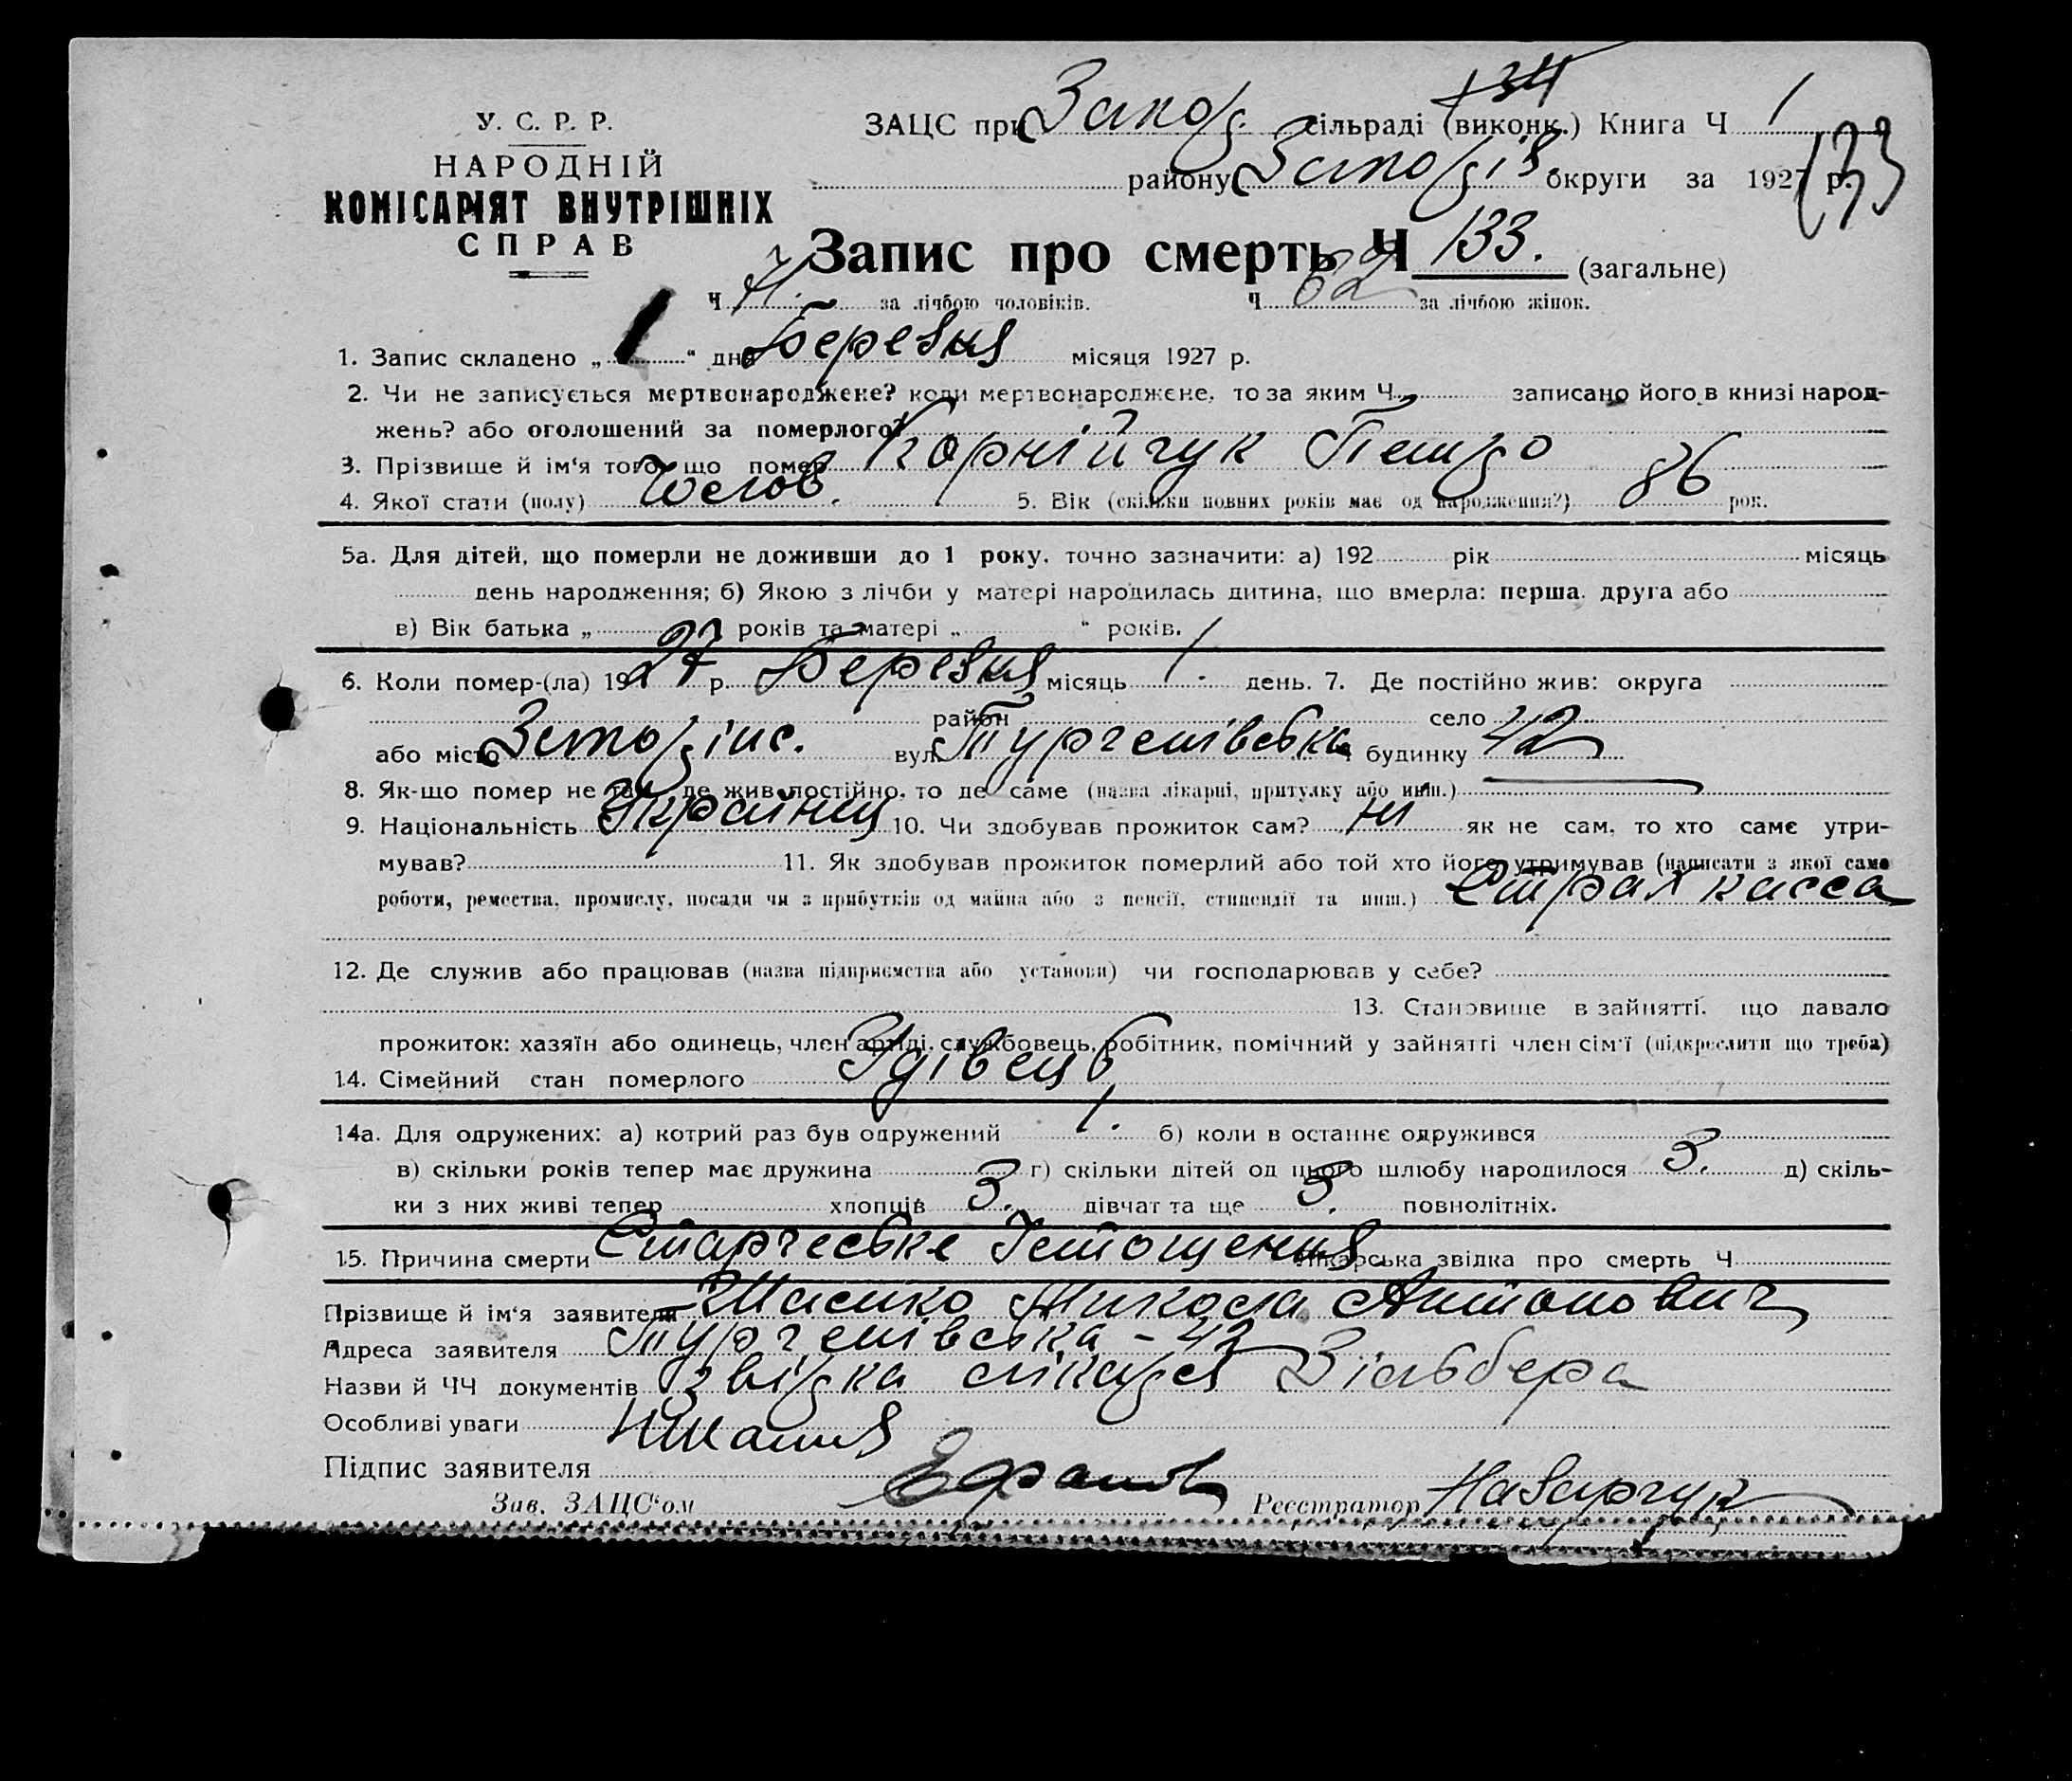 134
У. С. Р. Р.
НАРОДНІЙ
КОМІСАРІЯТ ВНУТРІШНІХ
СПРАВ
ЗАЦС при Запор. сільраді (виконк.) Книга Ч 1
району Запоріз. округи за 1927 р.
133
Запис про смерть Ч 133. (загальне)
Ч 71. за лічбою чоловіків. Ч 62 за лічбою жінок.
1. Запис складено „ 1 “ дня Березня місяця 1927 р.
2. Чи не записується мертвонароджене? коли мертвонароджене, то за яким Ч. записано його в книзі народ-
жень? або оголошений за померлого?
3. Прізвище й ім‘я того, що помер Корнійчук Петро
4. Якої стати (полу) Чолов. 5. Вік (скільки повних років має од народження?) 86 рок.
5а. Для дітей, що померли не доживши до 1 року, точно зазначити: а) 192 рік місяць
день народження; б) Якою з лічби у матері народилась дитина, що вмерла: перша, друга або
в) Вік батька „ років та матері „ “ років.
6. Коли помер-(ла) 1927 р. Березня місяць 1. день. 7. Де постійно жив: округа
район село
або місто Запоріж. вул. Тургенівська Ч будинку 42
8. Як-що помер не там, де жив постійно, то де саме (назва лікарні, притулку або инш.)
9. Національність Українец 10. Чи здобував прожиток сам? ні як не сам, то хто саме утри-
мував? 11. Як здобував прожиток померлий або той хто його утримував (написати з якої саме
роботи, ремества, промислу, посади чи з прибутків од майна або з пенсії, стипендії та инш.) Страх касса
12. Де служив або працював (назва підприємства або установи) чи господарював у себе?
13. Становище в зайнятті, що давало
прожиток: хазяїн або одинець, член артілі, службовець, робітник, помічний у зайнятті член сім‘ї (підкреслити що треба)
14. Сімейний стан померлого Удівець
14а. Для одружених: а) котрий раз був одружений 1. б) коли в останнє одружився
в) скільки років тепер має дружина 3 г) скільки дітей од цього шлюбу народилося 3. д) скіль-
ки з них живі тепер хлопців 3. дівчат та ще 3. повнолітніх.
15. Причина смерти Старческе Істощення Лікарська звідка про смерть Ч
Прізвище й ім‘я заявителя Микола Антонович
Адреса заявителя Тургенівська - 42
Назви й ЧЧ документів звідка лікаря Зільбера
Особливі уваги
Підпис заявителя
Зав. ЗАЦС‘ом Реєстратор